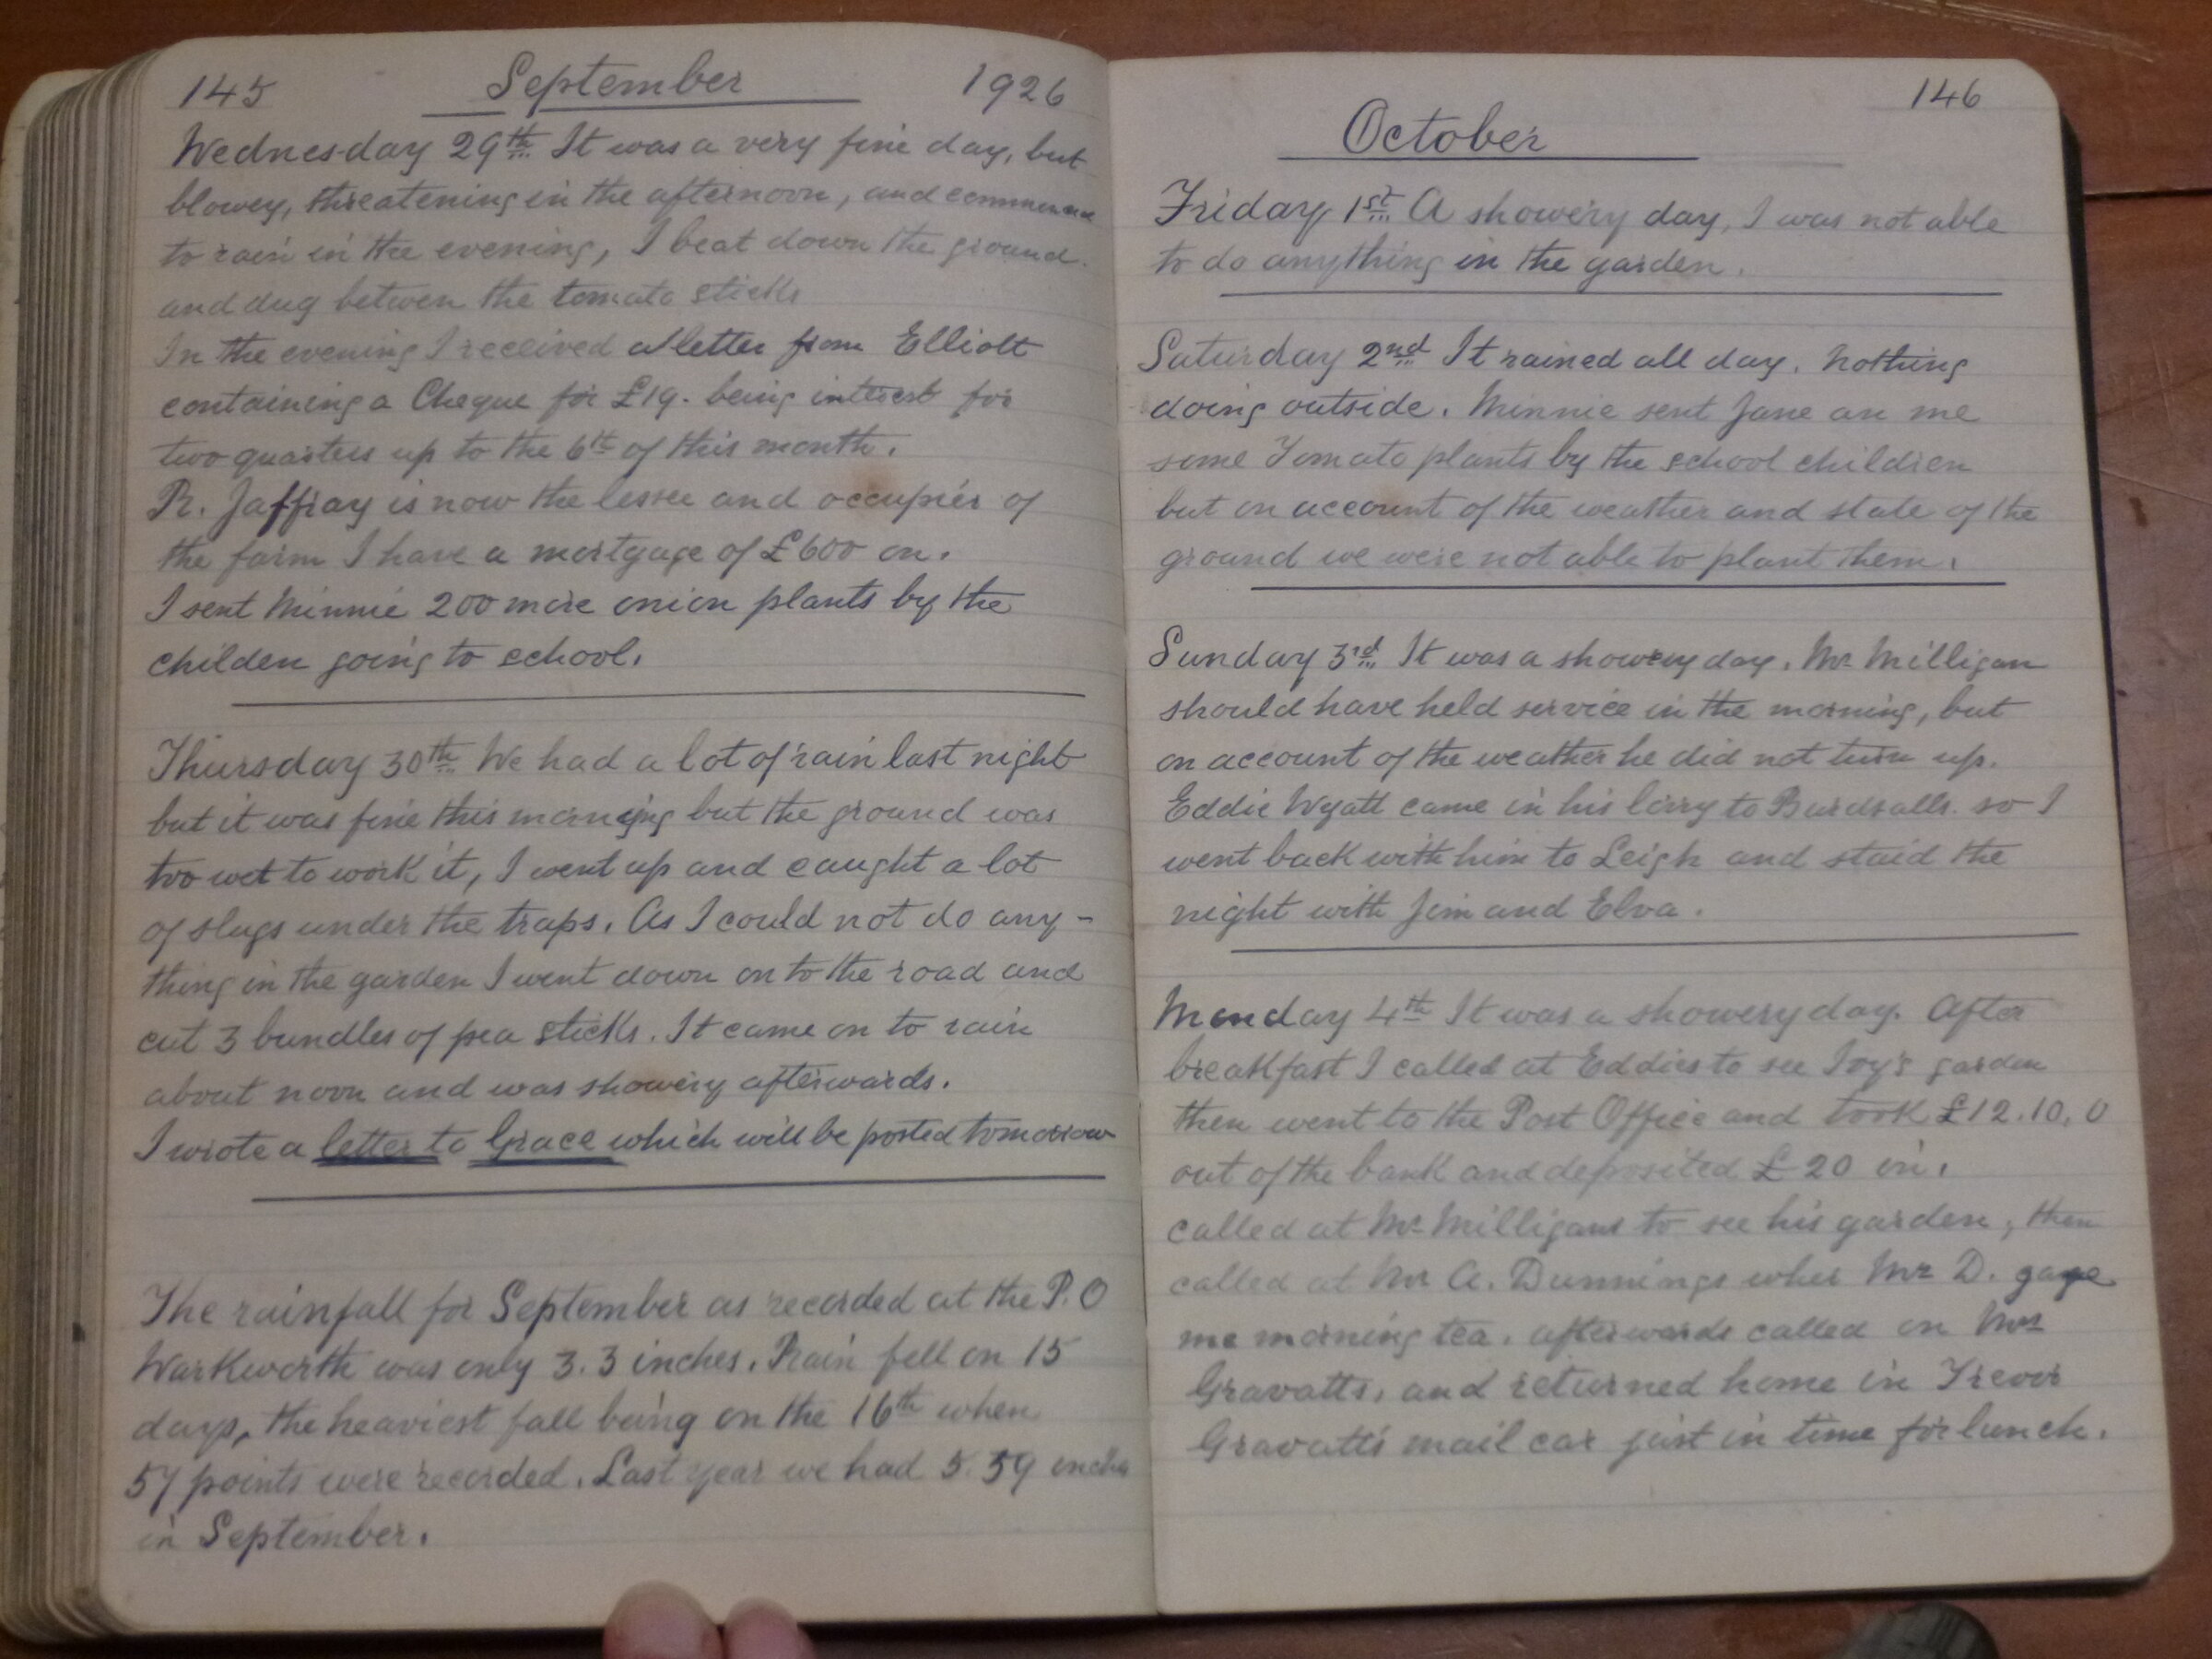 145 September 1926
Wednesday 29th It was a very fine day, but
blowey, threatening in the afternoon, and commenced
to rain in the evening, I beat down the ground
and dug betwen the tomato sticks
In the evening I received a letter from Elliott
containing a Cheque for £19. being interest for
two quarters up to the 6th of this month.
R. Jaffray is now the lessee and occupier of
the farm I have a mortgage of £600 on.
I sent Minnie 200 more onion plants by the
childen going to school.
Thursday 30th We had a lot of rain last night
but it was fine this morning but the ground was
too wet to work it, I went up and caught a lot
of slugs under the traps. As I could not do any-
thing in the garden I went down on to the road and
cut 3 bundles of pea sticks. It came on to rain
about noon and was showery afterwards.
I wrote a letter to Grace which will be posted tomorrow
The rainfall for September as recorded at the P.O
Warkworth was only 3.3 inches. Rain fell on 15
days, the heaviest fall being on the 16th when
57 points were recorded. Last year we had 5.59 inches
in September.
146
October
Friday 1st A showery day, I was not able
to do anything in the garden.
Saturday 2nd It rained all day. Nothing
doing outside. Minnie sent Jane an me
some Tomato plants by the school children
but on account of the weather and state of the
ground we were not able to plant them.
Sunday 3rd It was a showery day. Mr Milligan
should have held service in the morning, but
on account of the weather he did not turn up.
Eddie Wyatt came in his lorry to Burdsalls. so I
went back with him to Leigh and staid the
night with Jim and Elva.
Monday 4th It was a showery day. After
breakfast I called at Eddies to see Ivy's garden
then went to the Post Office and took £12.10.0
out of the bank and deposited £20 in.
called at Mr Milligans to see his garden, then
called at Mr A. Dunnings wher Mrs D. gave
me morning tea. afterwards called on Mrs
Gravatts, and returned home in Trevor
Gravatts mail car just in time for lunch.